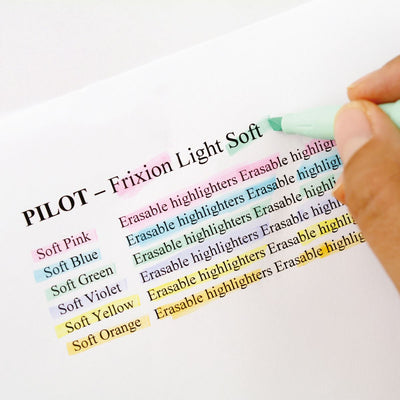 PILOT – Frixion Light Soft
Soft Pink Erasable highlighters Erasable highligh
Soft Blue Erasable highlighters Erasable highlig
Soft Green Erasable highlighters Erasable highli
Soft Violet Erasable highlighters Erasable highli
Soft Yellow Erasable highlighters Erasable highlig
Soft Orange Erasable highlighters Erasable highlig